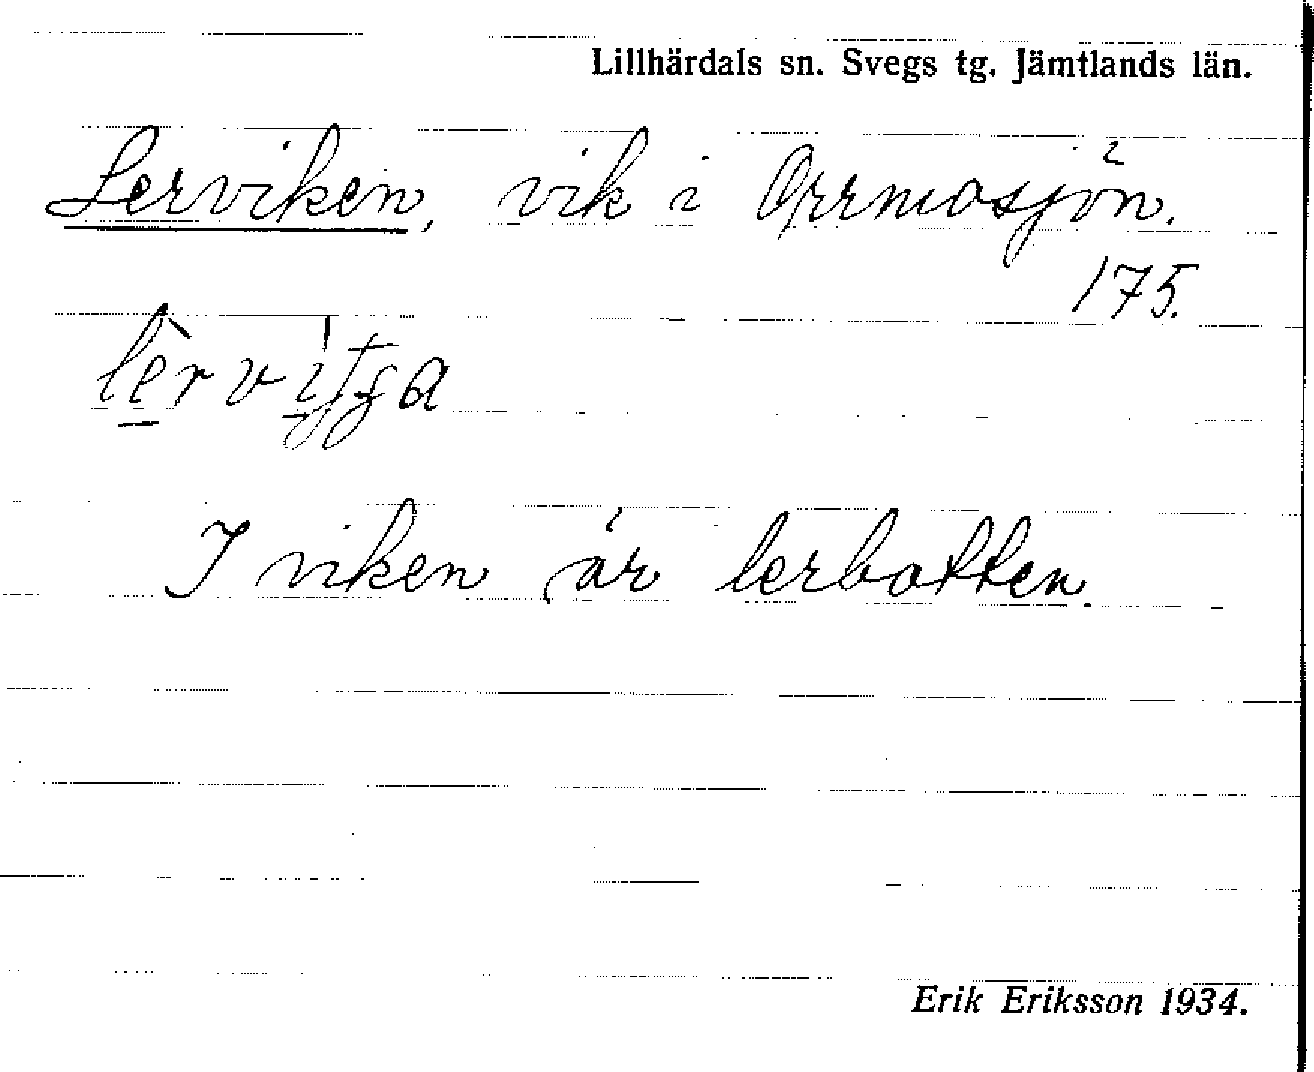 Lillhärdals sn. Svegs tg. Jämtlands län.
Lerviken, vik i Orrmosjön.
175.
I viken är lerbotten.
Erik Eriksson 1934.